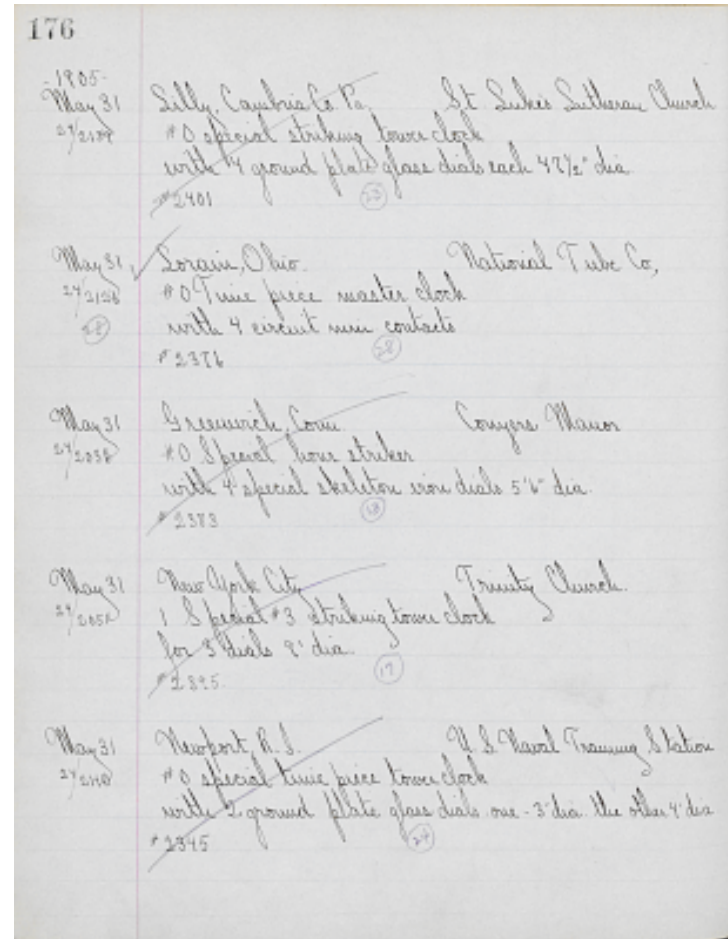 176
-1905-
May 31 Lilly, Cambria Co Pa, St. Lukes Lutheran Church
#0 special striking tower clock
with 4 ground plate glass dials each 47½" dia.
#2401
May 31, Lorain, Ohio. National Tube Co,
24/2126 #0 Time piece master clock
28 with 4 circuit min contacts
#2376 28
May 31 Greenwich, Conn. Conyers Manor
#0 Special hour striker
with 4 special skeleton iron dials 5'6" dia.
#2383 18
May 31 New York City Trinity Church.
1 Special #3 striking tower clock
for 3 dials 8' dia.
#2395. 17
May 31 Newport, R.I. U.S. Naval Training Station
#0 special time piece tower clock
with 2 ground plate glass dials one - 3' dia. the other 4' dia
#2345 24